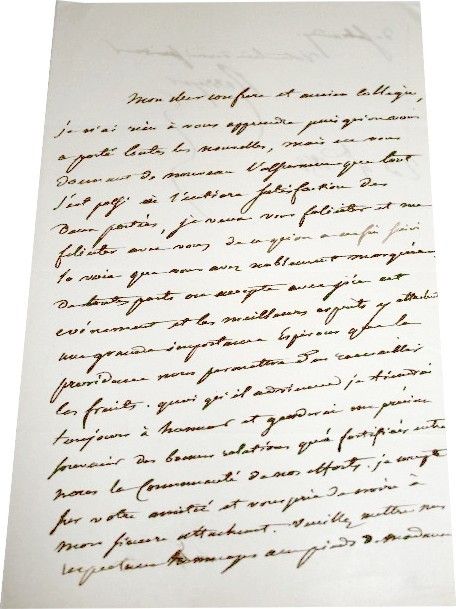 Mon cher confrère et ancien Collègue,
je n'ai rien à vous apprendre puisqu'on vous
a porté toutes les nouvelles, mais en vous
donnant de nouveau l'assurance que tout
s'est passé à l'entière satisfaction des
deux parties, je veux vous féliciter et me
féliciter avec vous de ce qu'on a suivi
la voie que vous avez noblement marquée.
de toutes parts on accepte avec joie cet
événement et les meilleurs esprits y attachent
une grande importance Espérons que la
providence nous permettra d'en recueillir
les fruits. quoi qu'il advienne je tiendrai
toujours à honneur et garderai un précieux
souvenir des bonnes relations qu'a fortifiées entre
nous la Communauté de nos efforts. je compte
sur votre amitié et vous prie de croire à
mon sincère attachement. Veuillez mettre mes
respectueux hommages aux pieds de Madame